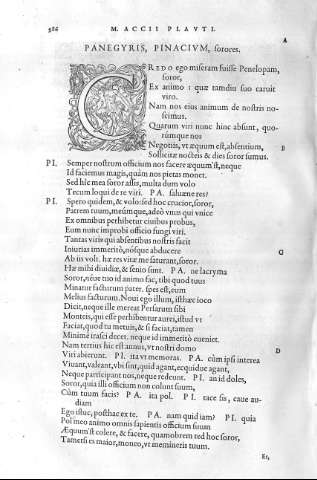 586 M. ACCII PLAVTI.
A
PANEGYRIS, PINACIVM, sorores.
CREDO ego miseram fuisse Penelopam,
soror,
Ex animo: quæ tamdiu suo caruit
viro.
Nam nos eius animum de nostris no-
scimus.
Quarum viri nunc hinc absunt, quo-
rumque nos
Negotiis, vt æquum est, absentium, B
Sollicitæ noctes & dies soror sumus.
PI. Semper nostrum officium nos facere æquum'st, neque
Id faciemus magis, quàm nos pietas monet.
Sed hîc mea soror assis, multa dum volo
Tecum loqui de re viri. PA. saluæne res?
PI. Spero quidem, & volo: sed hoc crucior, soror,
Patrem tuum, meumque, adeò vnus qui vnice
Ex omnibus perhibetur ciuibus probus,
Eum nunc improbi officio fungi viri.
Tantas viris qui absentibus nostris facit
Iniurias immeritò, nósque abducere C
Ab iis volt. hæ res vitæ me saturant, soror.
Hæ mihi diuidiæ, & senio sunt. PA. ne lacryma
Soror, néue tuo id animo fac, tibi quod tuus
Minatur facturum pater. spes est, eum
Melius facturum. Noui ego illum, isthæc ioco
Dicit, neque ille mereat Persarum sibi
Monteis, qui esse perhibentur aurei, istud vt
Faciat, quod tu metuis, & si faciat, tamen
Minimè irasci decet: neque id immeritò eueniet.
Nam tertius hic est annus, vt nostri domo D
Viri abierunt. PI. ita vt memoras. PA. cùm ipsi interea
Viuant, valeant, vbi sint, quid agant, ecquidue agant,
Neque participant nos, neque redeunt. PI. an id doles,
Soror, quia illi officium non colunt suum,
Cùm tuum facis? PA. ita pol. PI. tace sis, caue au-
diam
Ego istuc, posthac ex te. PA. nam quid iam? PI. quia
Pol meo animo omnis sapientis officium suum
Æquum'st colere, & facere, quamobrem ted hoc soror,
Tametsi es maior, moneo, vt memineris tuum.
Et,